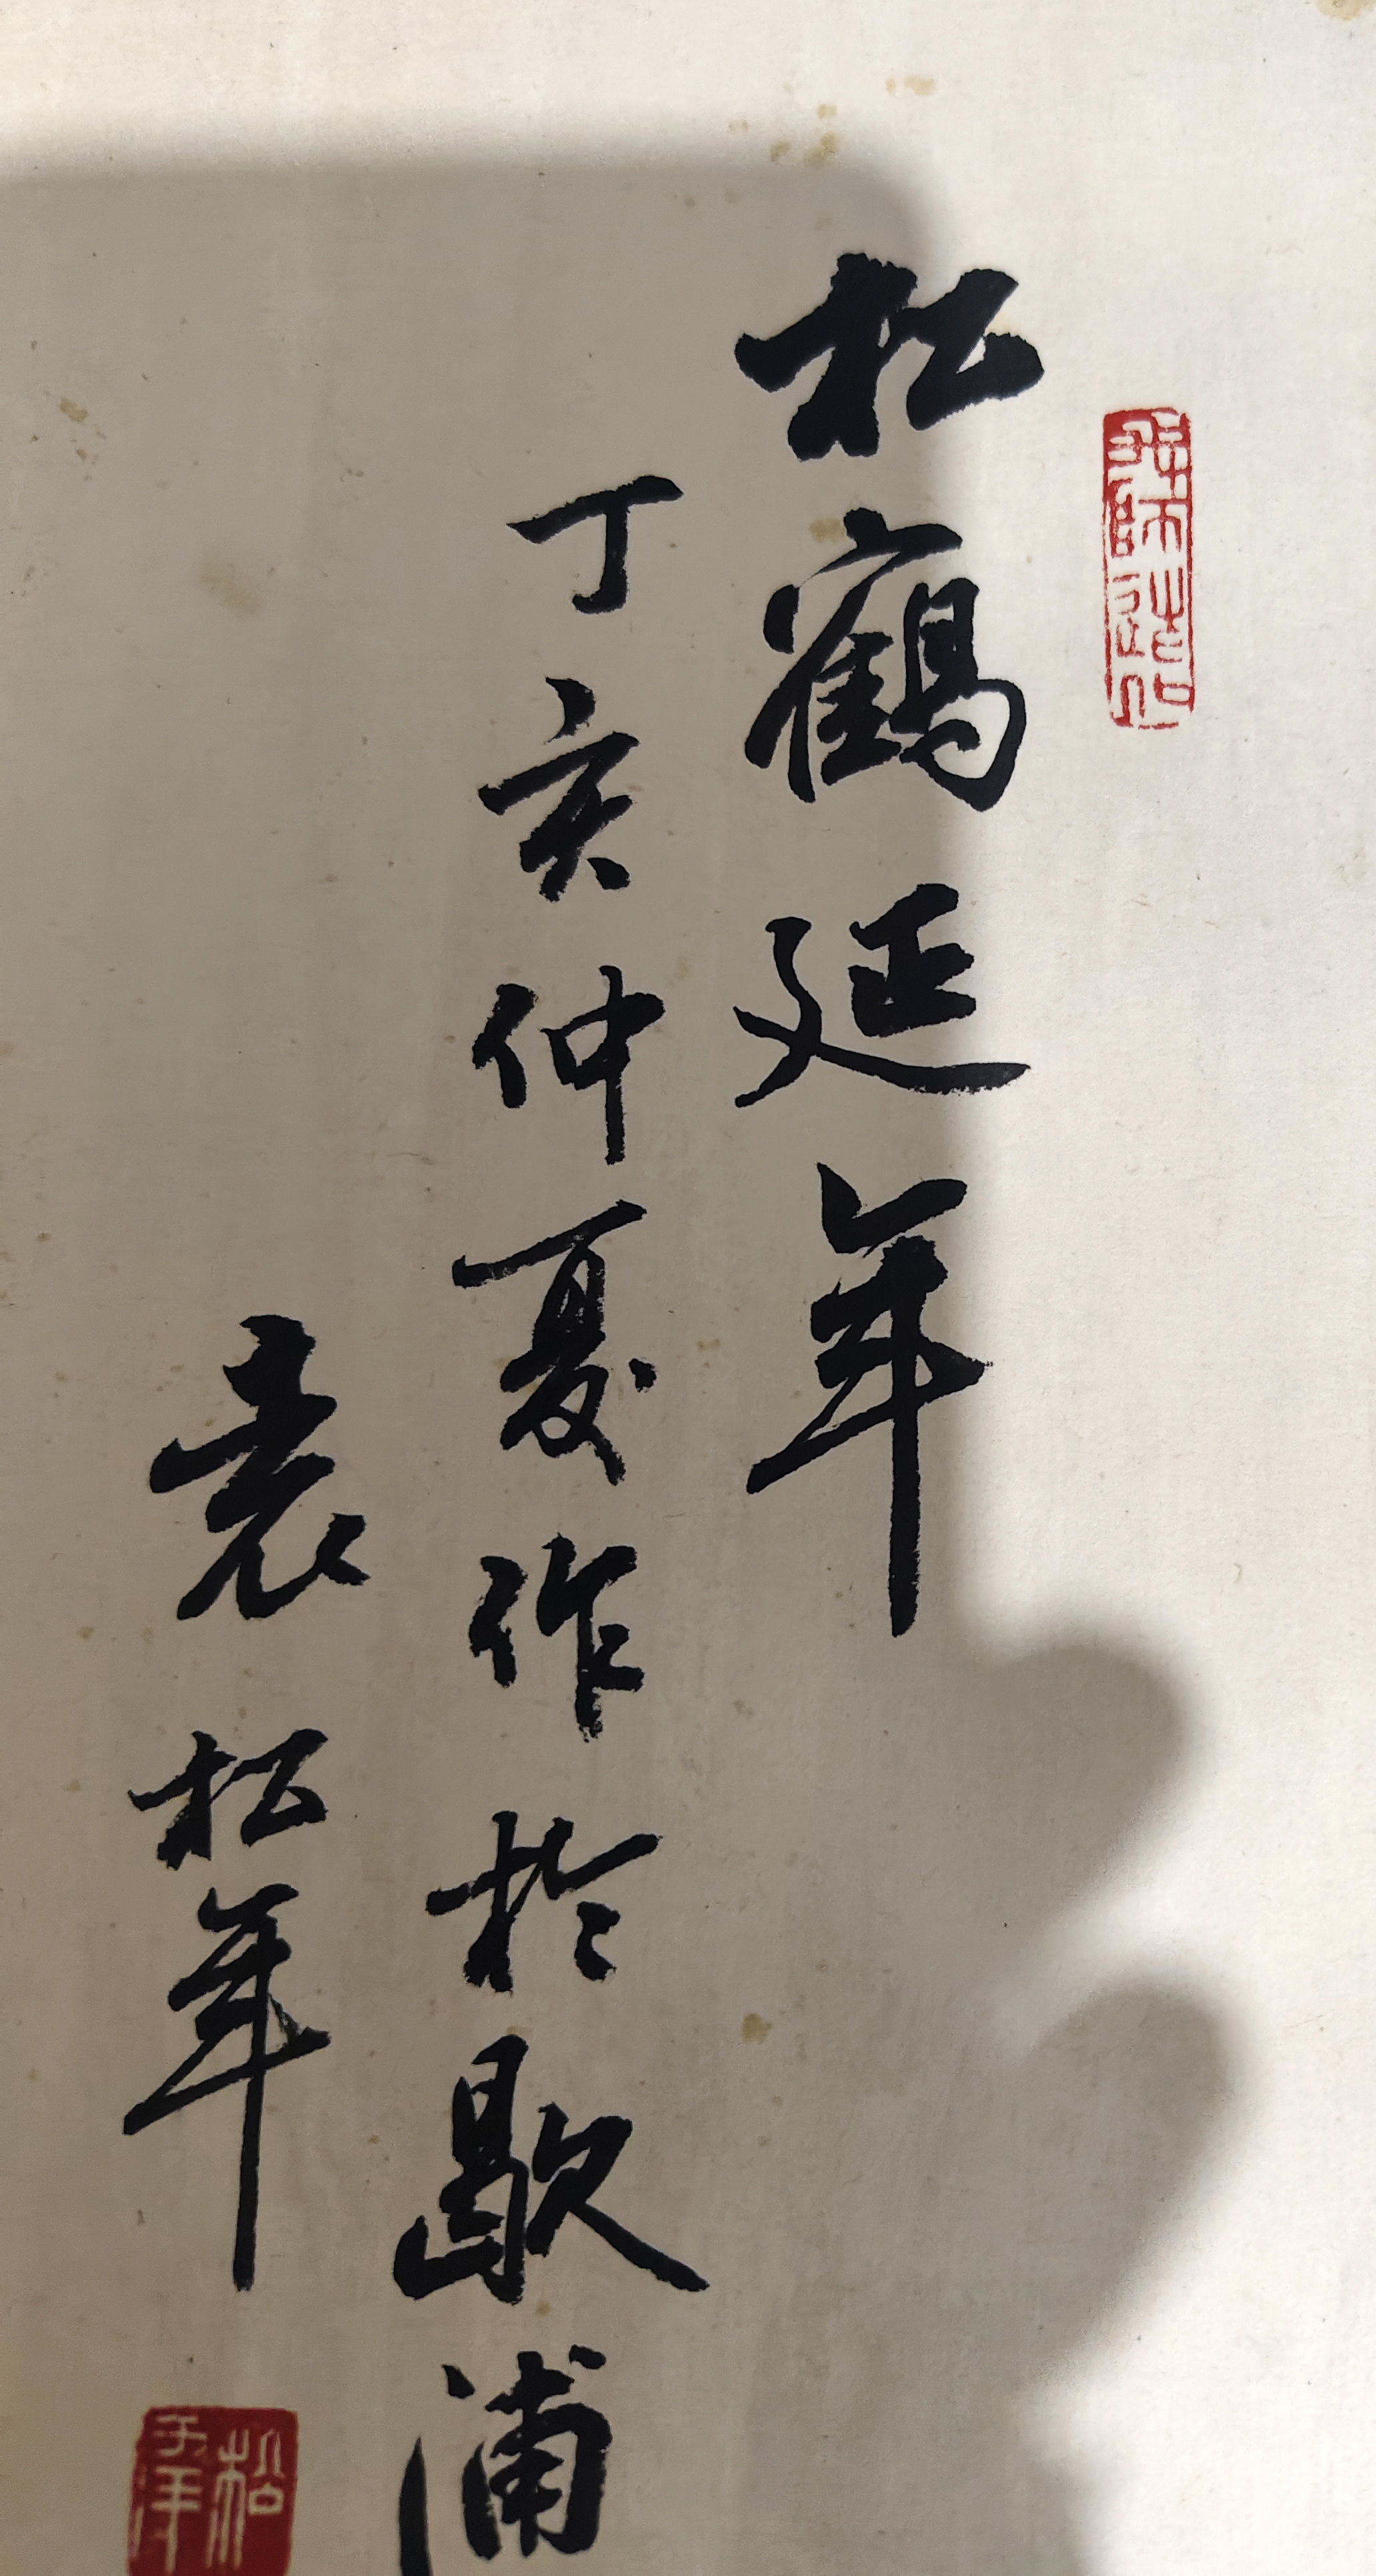 師造化
松鶴延年
丁亥仲夏作於歇浦
袁松年
松年